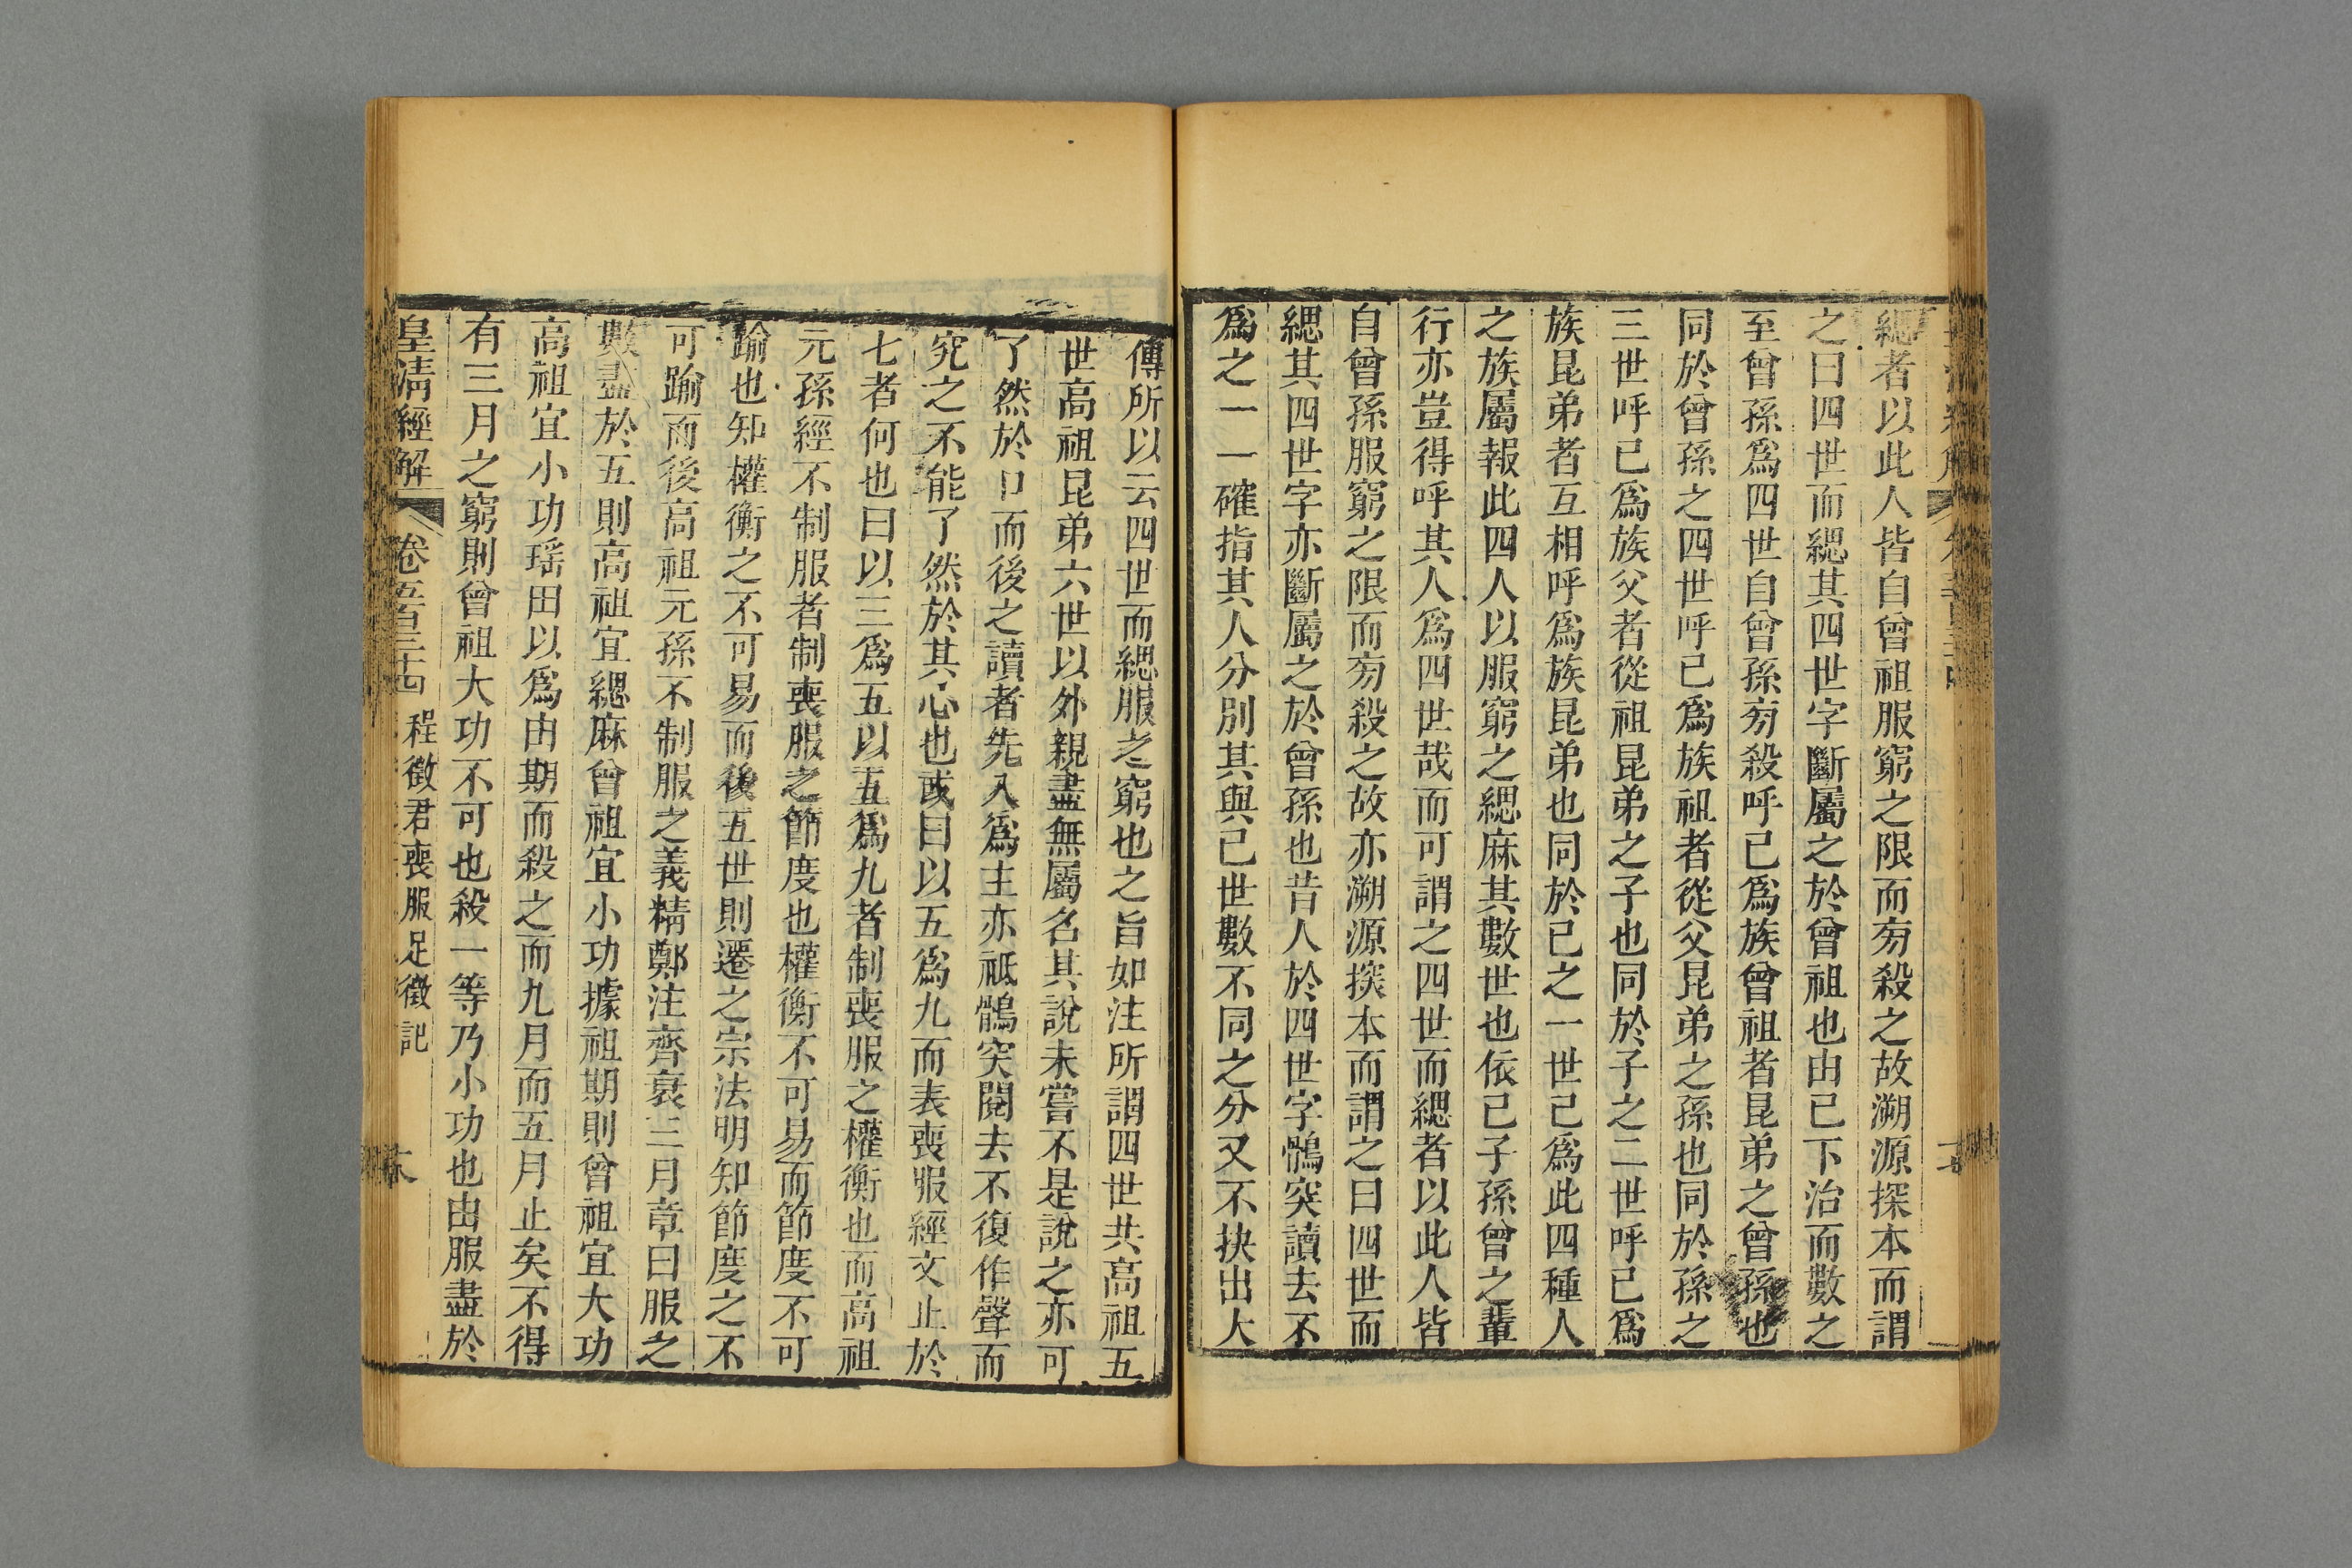 緦者以此人皆自曾祖服窮之限而旁殺之故溯源探本而謂
之曰四世而緦其四世字斷屬之於曾祖也由已下治而數之
至曾孫爲四世自曾孫旁殺呼己爲族曾祖者昆弟之曾孫也
同於曾孫之四世呼己爲族祖者從父昆弟之孫也同於孫之
三世呼已爲族父者從祖昆弟之子也同於子之二世呼已爲
族昆弟者互相呼爲族昆弟也同於己之一世己爲此四種人
之族屬報此四人以服窮之緦麻其數世也依己子孫曾之輩
行亦豈得呼其人爲四世哉而可謂之四世而緦者以此人皆
自曾孫服窮之限而旁殺之故亦溯源探本而謂之曰四世而
緦其四世字亦斷屬之於曾孫也昔人於四世字鶻突讀去不
爲之一一確指其人分別其與已世數不同之分又不抉出大
傳所以云四世而緦服之窮也之旨如注所謂四世共高祖五
世高祖昆弟六世以外親盡無屬名其說未嘗不是說之亦可
了然於口而後之讀者先入爲主亦祗鶻突閱去不復作聲而
究之不能了然於其心也或曰以五爲九而表喪服經文止於
七者何也曰以三爲五以五爲九者制喪服之權衡也而高祖
元孫經不制服者制喪服之節度也權衡不可易而節度不可
踰也知權衡之不可易而後五世則遷之宗法明知節度之不
可踰而後高祖元孫不制服之義精鄭注齊衰三月章曰服之
數盡於五則高祖宜緦麻曾祖宜小功據祖期則曾祖宜大功
高祖宜小功瑤田以爲由期而殺之而九月而五月止矣不得
有三月之窮則曾祖大功不可也殺一等乃小功也由服盡於
皇淸經解 卷五百三十四 程徵君喪服足徵記